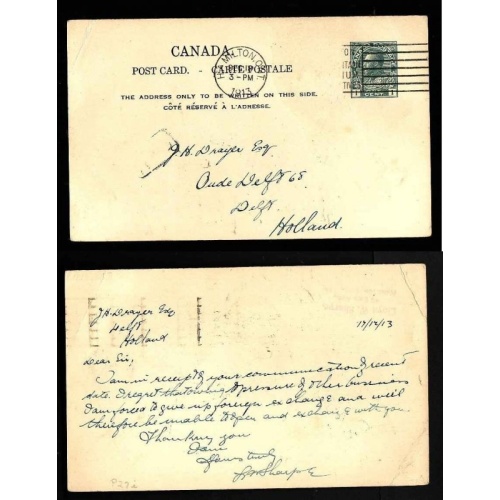 CANADA
POST CARD. - CARTE POSTALE
THE ADDRESS ONLY TO BE WRITTEN ON THIS SIDE.
CÔTÉ RÉSERVÉ À L'ADRESSE.
HAMILTON, ONT.
DEC 18
3-PM
1913
1 CENT 1
J.H. Drayer Esq
Oude Delft 68
Delft.
Holland.
J.H. Drayer Esq
Delft
Holland
17/12/13
Dear Sir,
I am in receipt of your communication of recent
date. I regret that owing to pressure of other business
I am forced to give up foreign exchange and will
therefore be unable to open and exchange with you.
Thanking you
I am
Yours truly
Sharpe